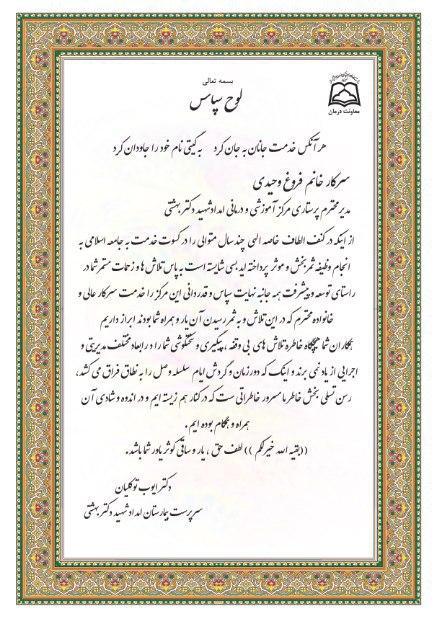 بسمه تعالی
لوح سپاس
معاونت درمان
هر آنکس خدمت جانان به جان کرد به گیتی نام خود را جاودان کرد
سرکار خانم فروغ وحیدی
مدیر محترم پرستاری مرکز آموزشی و درمانی امداد شهید دکتر بهشتی
از اینکه در کنف الطاف خاصه الهی چند سال متوالی را در کسوت خدمت به جامعه اسلامی به
انجام وظیفه ثمربخش و موثر پرداخته اید بسی شایسته است به پاس تلاش ها و زحمات مستمر شما در
راستای توسعه و پیشرفت همه جانبه نهایت سپاس و قدردانی این مرکز را خدمت سرکار عالی و
خانواده محترم که در این تلاش و به ثمر رسیدن آن یار و همراه شما بودند ابراز داریم
همکاران شما هیچگاه خاطره تلاش های بی وقفه ، پیگیری و سختکوشی شما را در ابعاد مختلف مدیریتی و
اجرایی از یاد نمی برند و اینک که دور زمان و گردش ایام سلسله وصل را به نطاق فراق می کشد،
رسن تسلی بخش خاطر ما مسرور خاطراتی ست که در کنار هم زیسته ایم و در اندوه و شادی آن
همراه و همگام بوده ایم .
((بقیه الله خیر لکم )) لطف حق ، یار و ساقی کوثر یاور شما باشد.
دکتر ایوب توکلیان
سرپرست بیمارستان امداد شهید دکتر بهشتی